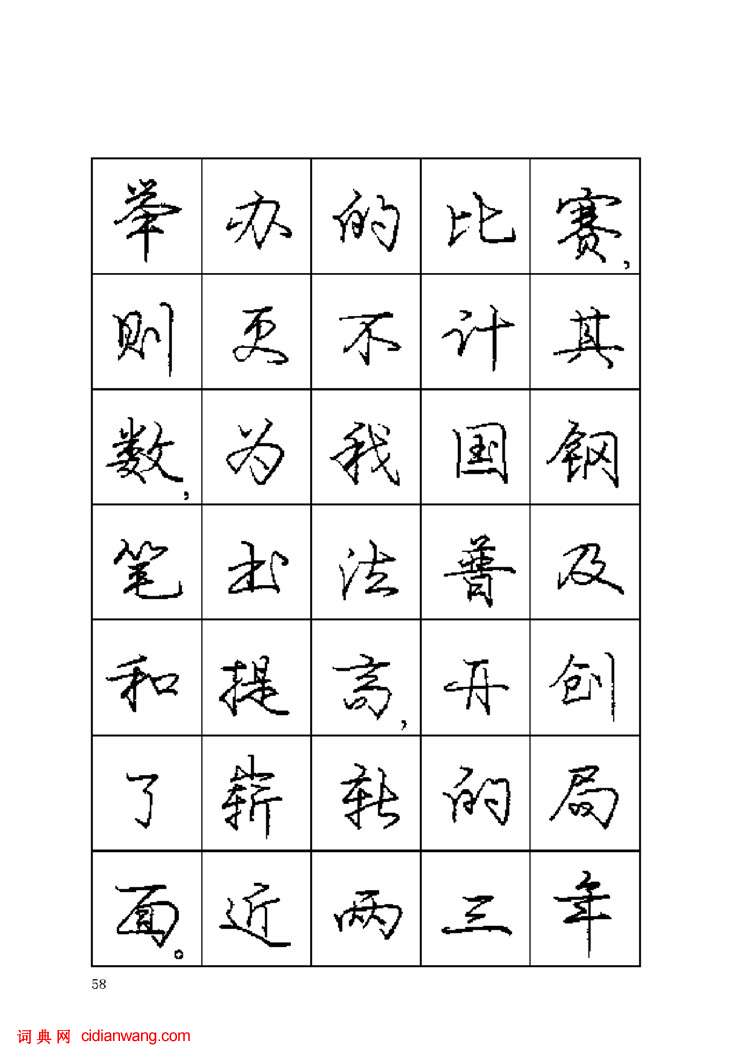 举办的比赛，
则更不计其
数，为我国钢
笔书法普及
和提高，再创
了崭新的局
面。近两三年
58
词典网 cidianwang.com